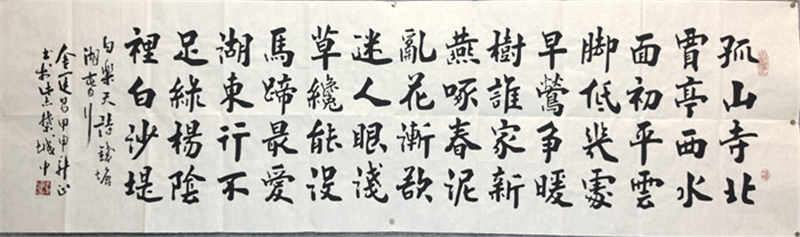 孤山寺北
賈亭西水
面初平雲
脚低幾處
早鶯争暖
樹誰家新
燕啄春泥
亂花漸欲
迷人眼淺
草纔能没
馬蹄最愛
湖東行不
足綠楊陰
裡白沙堤
白樂天詩錢塘
湖春行
甲申新正
城中